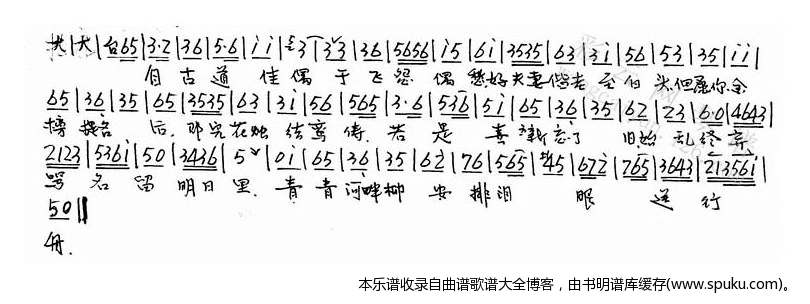 大|大|台65|3·2|36|5·6|i i|3 3|36|5656|i5|6i|3535|63|3i|56|53|35|i i|
自古道 佳偶 于飞 偶 好夫妻偕老 至白头但愿你金
65|36|35|65|3535|63|3i|56|565|3·6|536|5i|65|36|35|62|23|6·0|4643|
榜提名 后, 那 花烛 结鸾俦. 若 是 喜新忘了 旧始乱终弃
2123|5361|50|3436|5|0i|65|36|35|62|76|565|45|672|765|3643|213561|
骂名留 明日里. 青青河畔柳 安排泪 眼 送 行
50||
舟.
本乐谱收录自曲谱歌谱大全博客，由书明谱库缓存(www.spuku.com)。